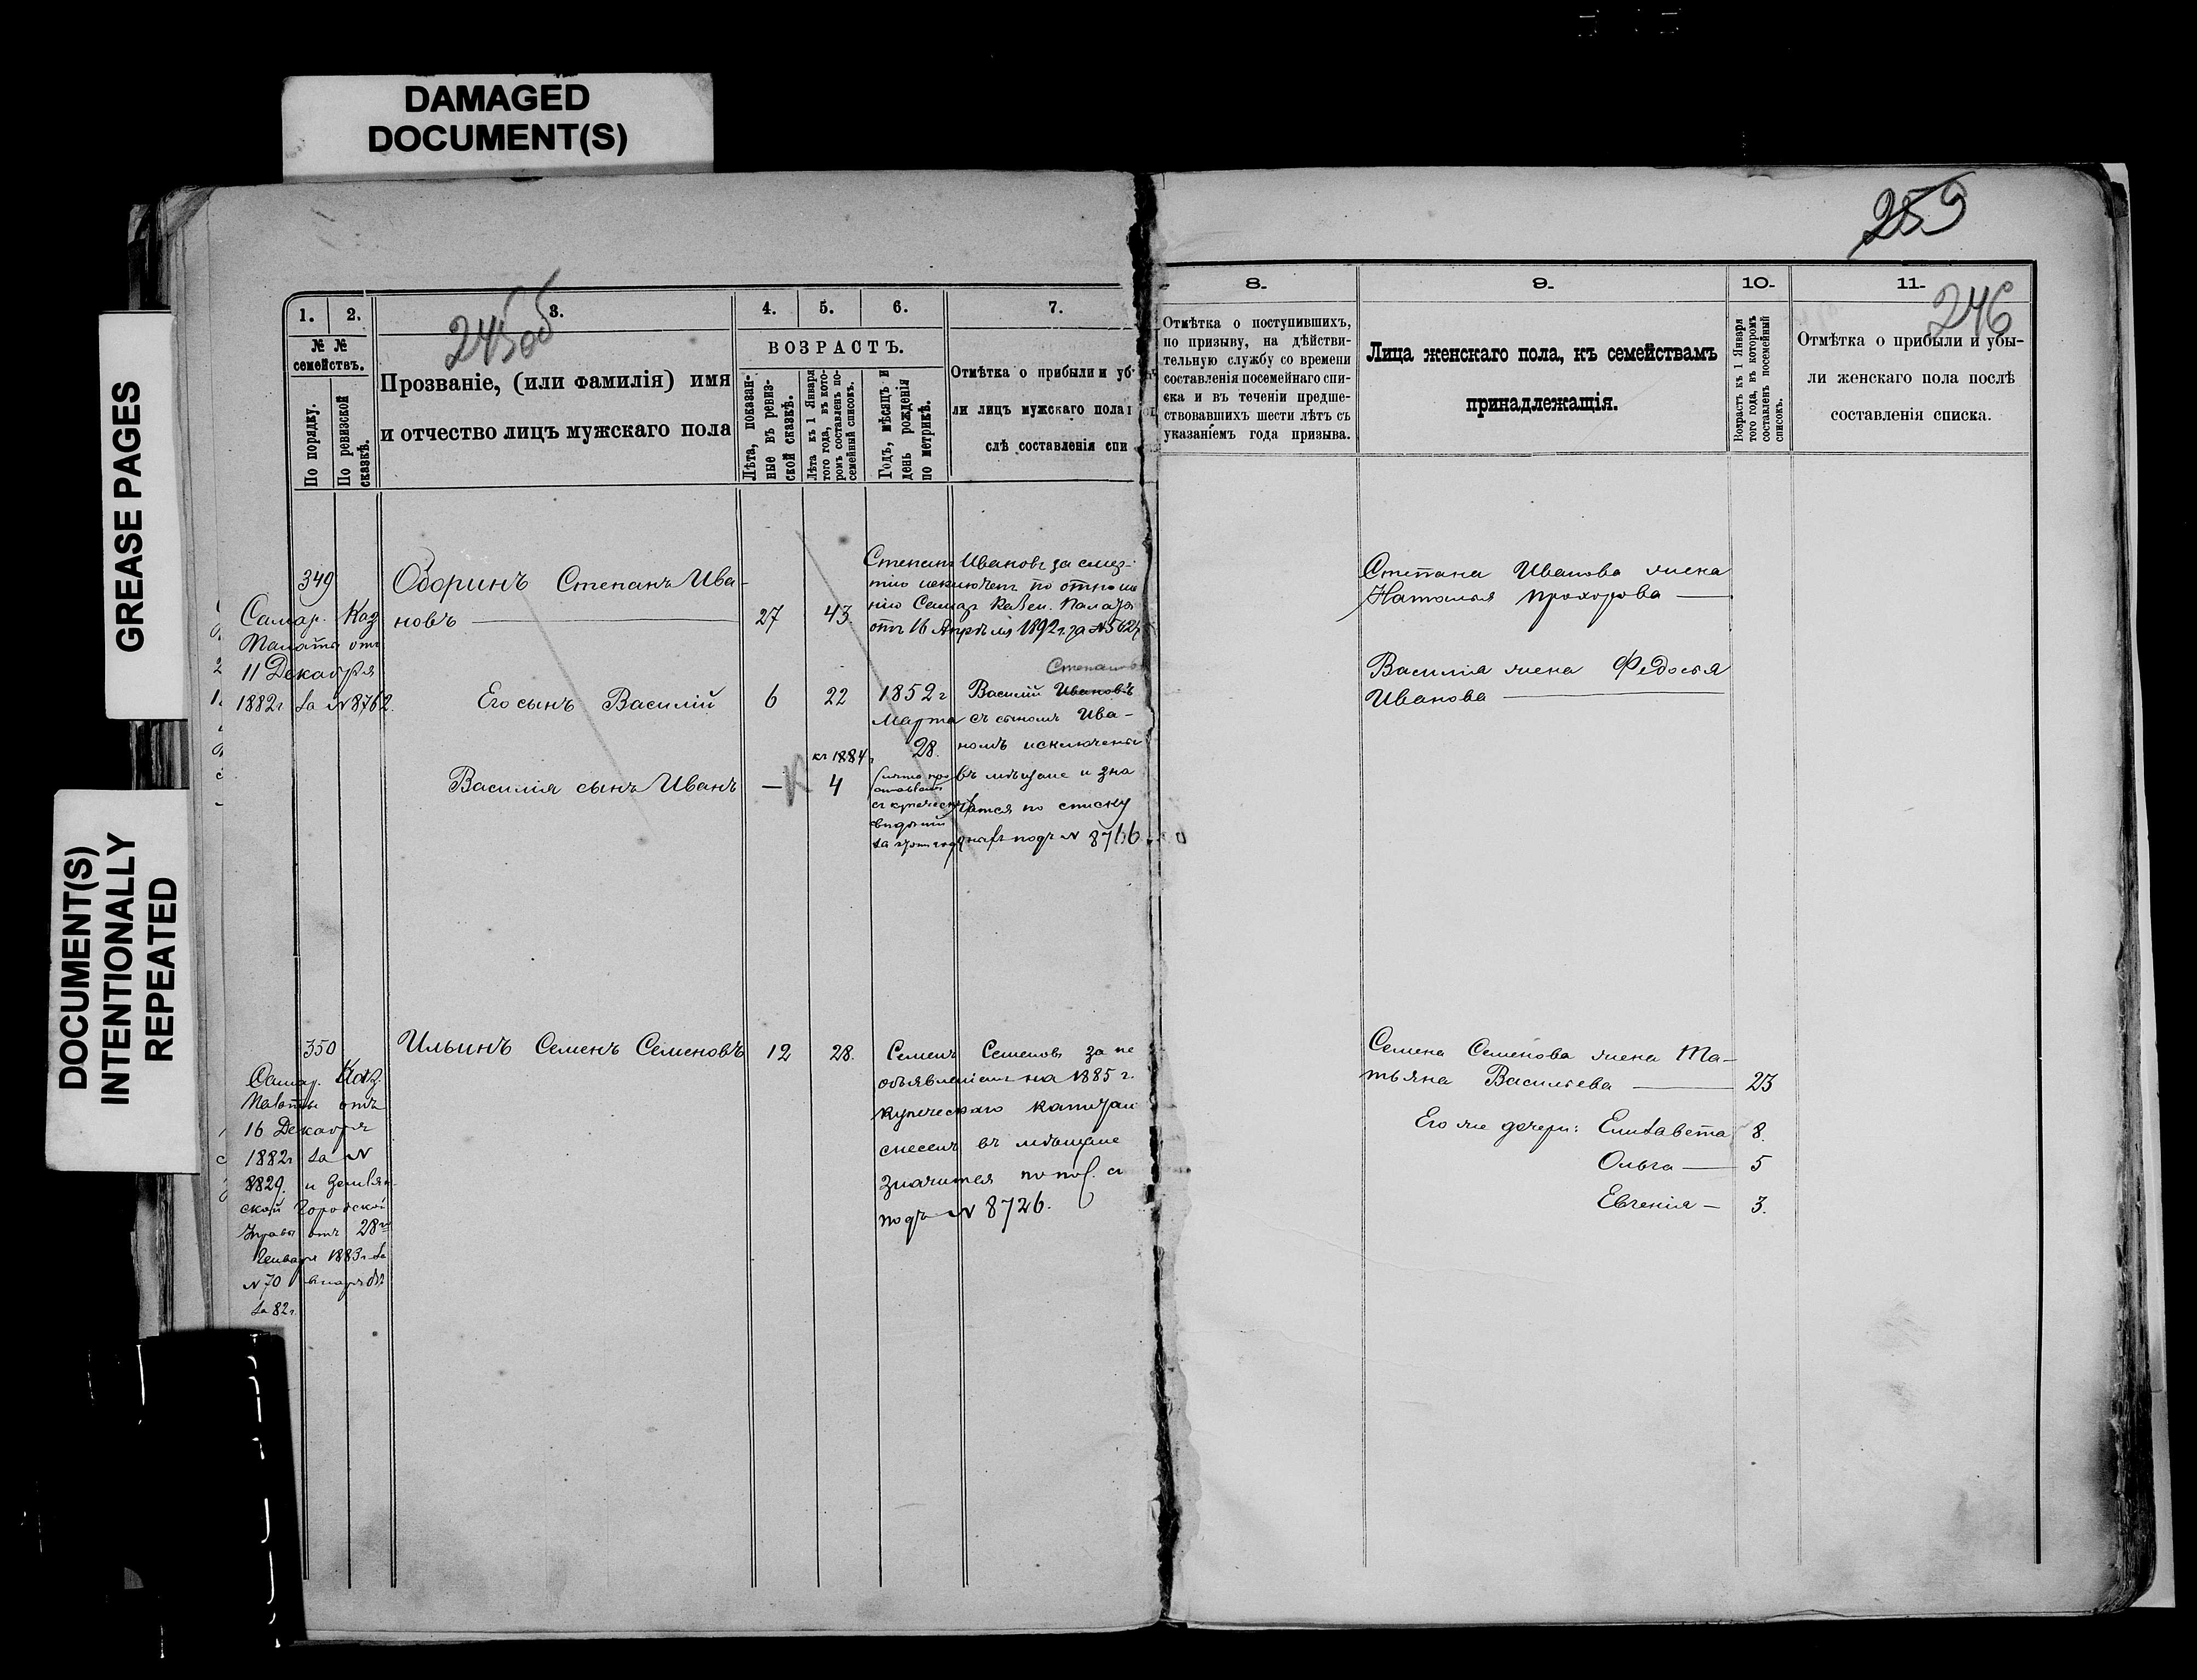 DAMAGED
DOCUMENT(S)
GREASE PAGES
DOCUMENT(S)
INTENTIONALLY
REPEATED
259
245об
246
1.
2.
3.
4.
5.
6.
7.
№ №
семействъ.
По порядку.
По ревизской
сказкѣ.
Прозваніе, (или фамилія) имя
и отчество лицъ мужскаго пола
ВОЗРАСТЪ.
Лѣта, показан-
ные въ ревиз-
ской сказкѣ.
Лѣта къ 1 Января
того года, въ кото-
ромъ составленъ по-
семейный списокъ.
Годъ, мѣсяцъ и
день рожденія
по метрикѣ.
Отмѣтка о прибыли и уб
ли лицъ мужскаго пола
слѣ составленія спи
8.
9.
10.
11.
Отмѣтка о поступившихъ,
по призыву, на дѣйстви-
тельную службу со времени
составленія посемейнаго спи-
ска и въ теченіи предше-
ствовавшихъ шести лѣтъ съ
указаніемъ года призыва.
Лица женскаго пола, къ семействамъ
принадлежащія.
Возрастъ къ 1 Января
того года, въ которомъ
составленъ посемейный
списокъ.
Отмѣтка о прибыли и убы-
ли женскаго пола послѣ
составленія списка.
349
Самар. Каз
Палаты отъ
11 Декабря
1882г за № 8762.
Одоринъ Степанъ Ива-
новъ
27
43
Степанъ Ивановъ за смер-
тію исключенъ по отноше
нію Самар Казен. Палаты
отъ 16 Апрѣля 1892 г. за № 562
Его сынъ Василій
6
22
1852 г
Марта
28.
Степановъ
Василій Ивановъ
съ сыномъ Ива-
номъ исключены
въ мѣщане и зна
чатся по списку
подъ № 8766
Василія сынъ Иванъ
—
къ 1884 г
4
Степана Иванова жена
Наталья Прохорова
Василія жена Федосья
Иванова
350
Самар. Каз.
Палаты отъ
16 Декабря
1882г за №
8829. и
ской Городской
Управы отъ 28го
Января 1883г за
№ 70
за 82г
Ильинъ Семенъ Семеновъ
12
28.
Семенъ Семеновъ за не
объявленіемъ на 1885 г.
купеческаго капитала
снесенъ въ мѣщане
значится по пос. сп
подъ № 8726.
Семена Семенова жена Та-
тьяна Васильева
23
Его же дочери: Елизавета
8.
Ольга
5
Евгенія
3.